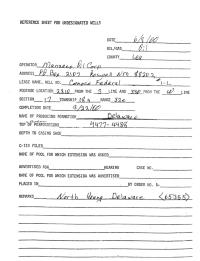 REFERENCE SHEET FOR UNDESIGNATED WELLS
DATE 6/8/60
OIL/GAS Oil
COUNTY Lea
OPERATOR Manzano Oil Corp
ADDRESS PO Box 2107 Roswell NM 88202
LEASE NAME, WELL NO. Conoco Federal #1-L
FOOTAGE LOCATION 2310 FROM THE S LINE AND 330 FROM THE W LINE
SECTION 17 TOWNSHIP 18s RANGE 32e
COMPLETION DATE
NAME OF PRODUCING FORMATION Delaware
TOP OF PERFORATIONS 4477-4488
DEPTH TO CASING SHOE
C-123 FILED
NAME OF POOL FOR WHICH EXTENSION WAS ASKED
ADVERTISED FOR HEARING CASE NO.
NAME OF POOL FOR WHICH EXTENSION WAS ADVERTISED
PLACED IN BY ORDER NO. R-
REMARKS North Young Delaware <65365>